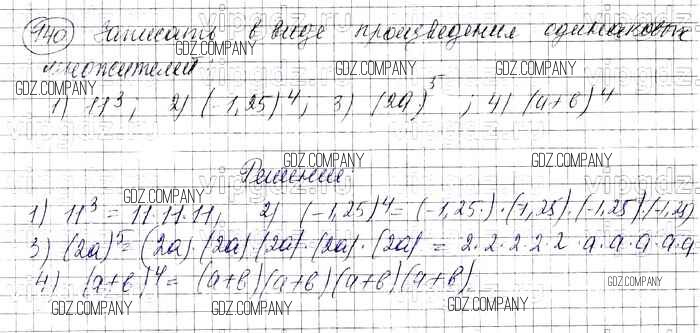 940 Записать в виде произведения одинаковых
множителей:
1) 11³; 2) (-1,25)⁴; 3) (2a)⁵; 4) (a+b)⁴
Решение:
1) 11³ = 11·11·11; 2) (-1,25)⁴ = (-1,25)·(-1,25)·(-1,25)·(-1,25)
3) (2a)⁵ = (2a)·(2a)·(2a)·(2a)·(2a) = 2·2·2·2·2·a·a·a·a·a
4) (a+b)⁴ = (a+b)(a+b)(a+b)(a+b)
GDZ.COMPANY
GDZ.COMPANY
GDZ.COMPANY
GDZ.COMPANY
GDZ.COMPANY
GDZ.COMPANY
GDZ.COMPANY
GDZ.COMPANY
GDZ.COMPANY
GDZ.COMPANY
GDZ.COMPANY
GDZ.COMPANY